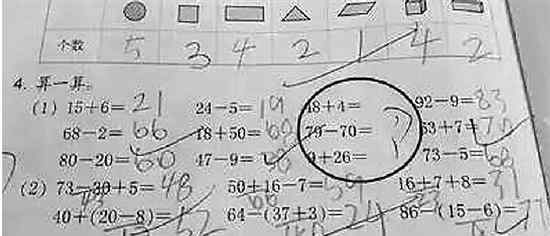 个数 5 3 4 2 1 4 2
4. 算一算。
(1) 15+6=21 24-5=19 48+4= 92-9=83
68-2=66 18+50=60 79-70= ? 63+7=70
80-20=60 47-9= 9+26= 73-5=68
(2) 73-30+5=48 50+16-7=59 16+7+8=31
40+(20-8)=52 64-(37+3)=24 86-(15-6)=77